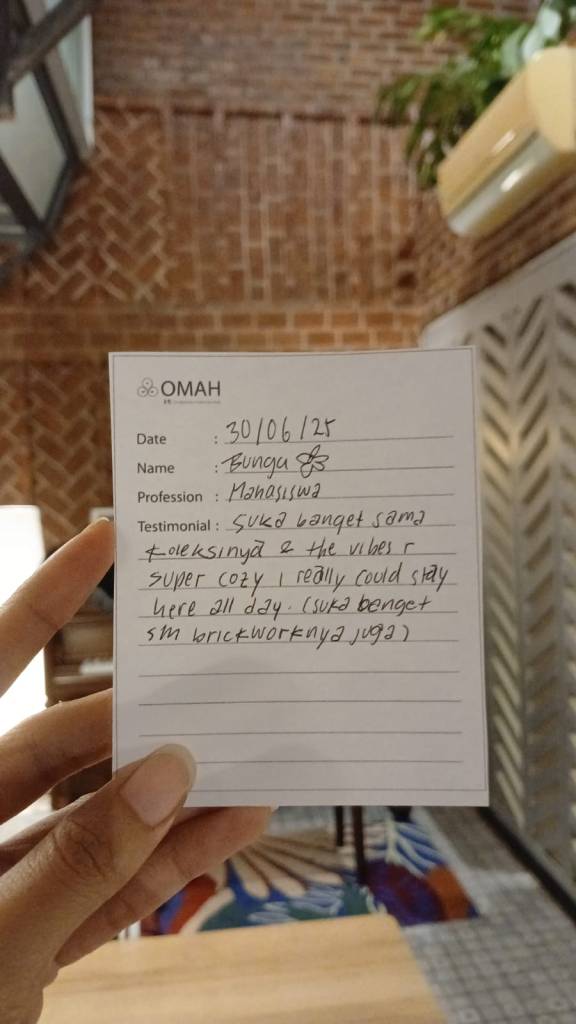 OMAH
Date : 30/06/25
Name : Bunga
Profession : Mahasiswa
Testimonial : suka banget sama
koleksinya & the vibes r
super cozy i really could stay
here all day. (suka banget
sm brickworknya juga)